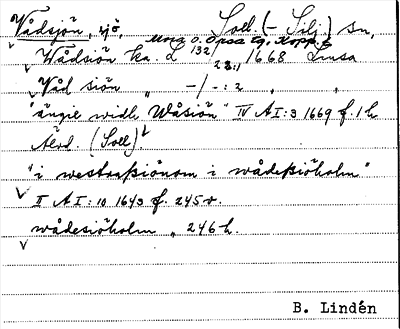 Vådsjön, sjö, Soll. (- Silj.) sn,
Mora o. Orsa tg, Kopp. l
Wådsiön ka. L 132/23:1 1668 Limsa
Wåd siön " -/-: 2 " "
"ängie widh Wåsiön" IV AI:3 1669 f. 1 h
Älvd. (Soll)
"i westraßiönom i wådeßiöholm"
II AI:10 1643 f. 245 v.
wådesiöholm " 246 h.
B. Lindén